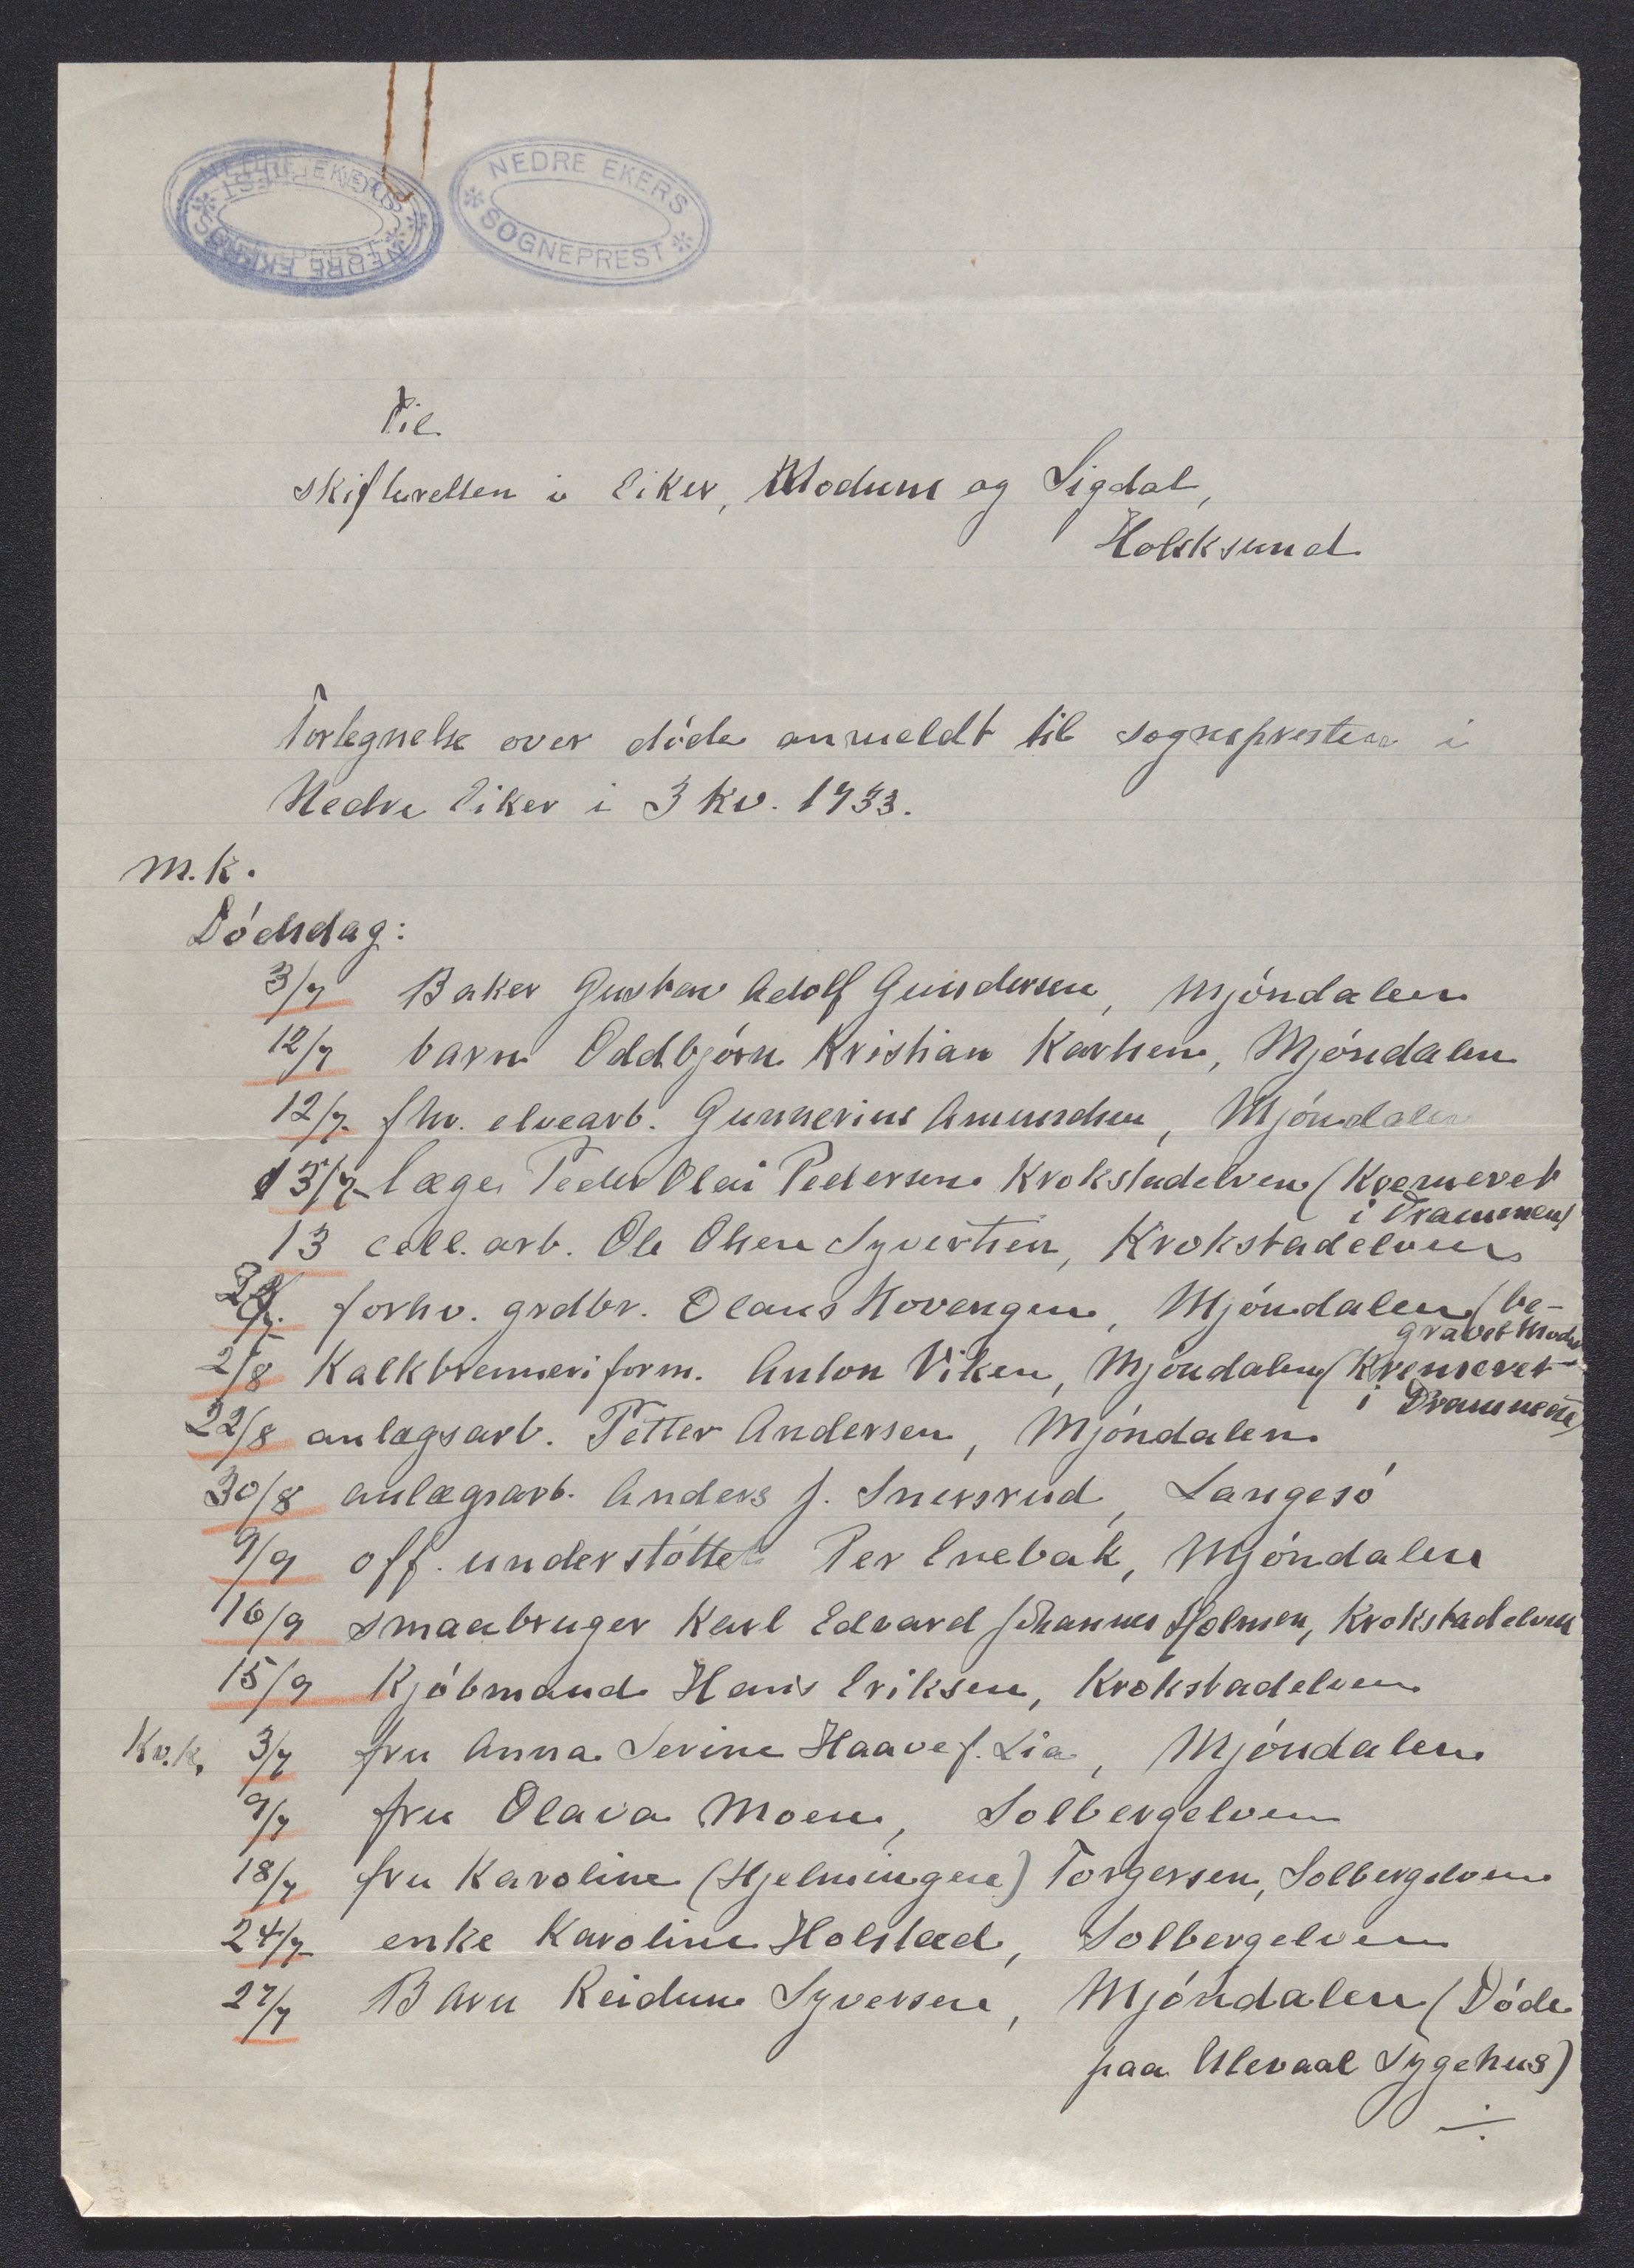 NEDRE EKERS
SOGNEPREST
NEDRE EKERS
SOGNEPREST
Til
skifteretten i Eiker, Modum og Sigdal,
Hokksund
Fortegnelse over døde anmeldt til sognepresten i
Nedre Eiker i 3 kv. 1933.
M.k.
Dødsdag:
3/7 Baker Gustav Adolf Gundersen, Mjøndalen
12/7 barn Oddbjørn Kristian Karlsen, Mjøndalen
12/7 fhv. elvearb. Gunnerius Amundsen, Mjøndalen
13/7 læge Peder Olai Pedersen Krokstadelven (Kremeret
i Drammen)
13 cell. arb. Ole Olsen Syvertsen, Krokstadelven
forhv. grdbr. Olaus Hovengen, Mjøndalen (be-
gravet Modum
2/8 Kalkbrenneriform. Anton Viken, Mjøndalen (Kremeret
i Drammen)
22/8 anlægsarb. Petter Andersen, Mjøndalen
30/8 anlægsarb. Anders J. Snersrud, Langesø
9/9 off. understøttet Per Enebak, Mjøndalen
16/9 smaabruger Karl Edvard Johannes Holmen, Krokstadelven
15/9 Kjøbmand Hans Eriksen, Krokstadelven
Kv.k. 3/7 fru Anna Serine Haave f. Lia, Mjøndalen
9/7 fru Olava Moen, Solbergelven
18/7 fru Karoline (Hjelmingen) Torgersen, Solbergelven
24/7 enke Karoline Holstad, Solbergelven
27/7 Barn Reidun Syversen, Mjøndalen (Døde
paa Ulevaal Sygehus)